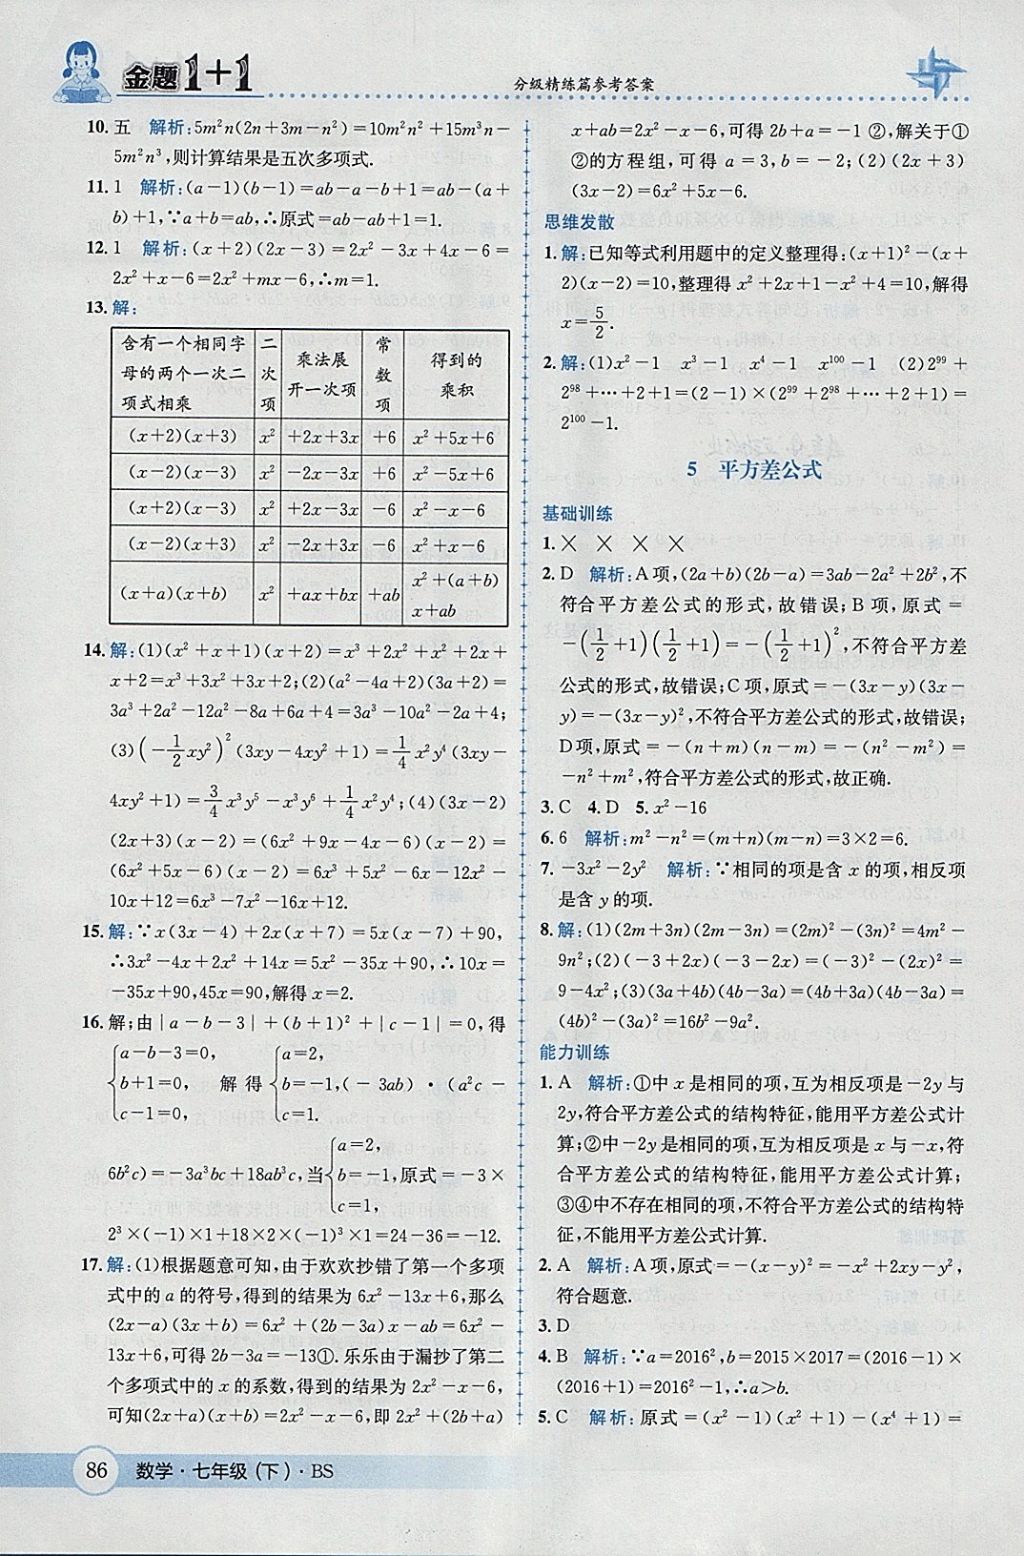 金题1+1
分级精练篇参考答案
10. 五 解析:5m²n(2n+3m-n²)=10m²n²+15m³n-
5m²n³,则计算结果是五次多项式.
11. 1 解析:(a-1)(b-1)=ab-a-b+1=ab-(a+
b)+1,∵a+b=ab,∴原式=ab-ab+1=1.
12. 1 解析:(x+2)(2x-3)=2x²-3x+4x-6=
2x²+x-6=2x²+mx-6,∴m=1.
13. 解:
含有一个相同字母的两个一次二项式相乘 二次项 乘法展开一次项 常数项 得到的乘积
(x+2)(x+3) x² +2x+3x +6 x²+5x+6
(x-2)(x-3) x² -2x-3x +6 x²-5x+6
(x+2)(x-3) x² +2x-3x -6 x²-x-6
(x-2)(x+3) x² -2x+3x -6 x²+x-6
(x+a)(x+b) x² +ax+bx +ab x²+(a+b)x+ab
14. 解:(1)(x²+x+1)(x+2)=x³+2x²+x²+2x+
x+2=x³+3x²+3x+2;(2)(a²-4a+2)(3a+2)=
3a³+2a²-12a²-8a+6a+4=3a³-10a²-2a+4;
(3)(-1/2xy²)²(3xy-4xy²+1)=1/4x²y⁴(3xy-
4xy²+1)=3/4x³y⁵-x³y⁶+1/4x²y⁴;(4)(3x-2)
(2x+3)(x-2)=(6x²+9x-4x-6)(x-2)=
(6x²+5x-6)(x-2)=6x³+5x²-6x-12x²-
10x+12=6x³-7x²-16x+12.
15. 解:∵x(3x-4)+2x(x+7)=5x(x-7)+90,
∴3x²-4x+2x²+14x=5x²-35x+90,∴10x=
-35x+90,45x=90,解得x=2.
16. 解;由|a-b-3|+(b+1)²+|c-1|=0,得
{a-b-3=0, b+1=0, c-1=0, 解得{a=2, b=-1, c=1. (-3ab)·(a²c-
6b²c)=-3a³bc+18ab³c,当{a=2, b=-1, c=1, 原式=-3×
2³×(-1)×1+18×2×(-1)³×1=24-36=-12.
17. 解:(1)根据题意可知,由于欢欢抄错了第一个多项
式中的a的符号,得到的结果为6x²-13x+6,那么
(2x-a)(3x+b)=6x²+(2b-3a)x-ab=6x²-
13x+6,可得2b-3a=-13①.乐乐由于漏抄了第二
个多项式中的x的系数,得到的结果为2x²-x-6,
可知(2x+a)(x+b)=2x²-x-6,即2x²+(2b+a)
x+ab=2x²-x-6,可得2b+a=-1②,解关于①
②的方程组,可得a=3,b=-2;(2)(2x+3)
(3x-2)=6x²+5x-6.
思维发散
1. 解:已知等式利用题中的定义整理得:(x+1)²-(x+
2)(x-2)=10,整理得x²+2x+1-x²+4=10,解得
x=5/2.
2. 解:(1)x²-1 x³-1 x⁴-1 x¹⁰⁰-1 (2)2⁹⁹+
2⁹⁸+…+2+1=(2-1)×(2⁹⁹+2⁹⁸+…+2+1)=
2¹⁰⁰-1.
5 平方差公式
基础训练
1. × × × ×
2. D 解析:A项,(2a+b)(2b-a)=3ab-2a²+2b²,不
符合平方差公式的形式,故错误;B项,原式=
-(1/2+1)(1/2+1)=-(1/2+1)²,不符合平方差
公式的形式,故错误;C项,原式=-(3x-y)(3x-
y)=-(3x-y)²,不符合平方差公式的形式,故错误;
D项,原式=-(n+m)(n-m)=-(n²-m²)=
-n²+m²,符合平方差公式的形式,故正确.
3. C 4. D 5. x²-16
6. 6 解析:m²-n²=(m+n)(m-n)=3×2=6.
7. -3x²-2y² 解析:∵相同的项是含x的项,相反项
是含y的项.
8. 解:(1)(2m+3n)(2m-3n)=(2m)²-(3n)²=4m²-
9n²;(2)(-3+2x)(-3-2x)=(-3)²-(2x)²=
9-4x²;(3)(3a+4b)(4b-3a)=(4b+3a)(4b-3a)=
(4b)²-(3a)²=16b²-9a².
能力训练
1. A 解析:①中x是相同的项,互为相反项是-2y与
2y,符合平方差公式的结构特征,能用平方差公式计
算;②中-2y是相同的项,互为相反项是x与-x,符
合平方差公式的结构特征,能用平方差公式计算;
③④中不存在相同的项,不符合平方差公式的结构特
征,不能用平方差公式计算.
2. A 解析:原式=-(x-y)²=-x²+2xy-y²,
符合题意.
3. D
4. B 解析:∵a=2016²,b=2015×2017=(2016-1)×
(2016+1)=2016²-1,∴a>b.
5. C 解析:原式=(x²-1)(x²+1)-(x⁴+1)=
86 数学·七年级(下)·BS